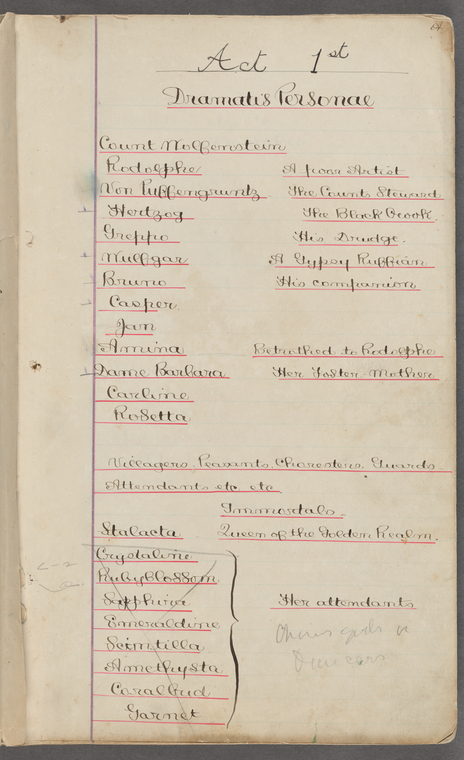 Act 1st
Dramatis Personae
Count Wolfenstein
Rodolphe A poor Artist
Von Puffengruntz The Counts Steward
Hertzog The Black Crook.
Greppo His Drudge.
Wulfgar A Gypsy Ruffian
Bruno His companion
Casper.
Jan
Amina Betrothed to Rodolphe
Dame Barbara Her Foster Mother
Carline
Rosetta
Villagers. Peasants. Choresters. Guards
Attendants etc. etc.
Immortals
Stalacta Queen of the Golden Realm.
Crystaline
Rubyblossom.
Sapphira
Her attendants
Emeraldine
Scintilla
Amethysta
Coralbud
Garnet
Chorus girls
Dancers